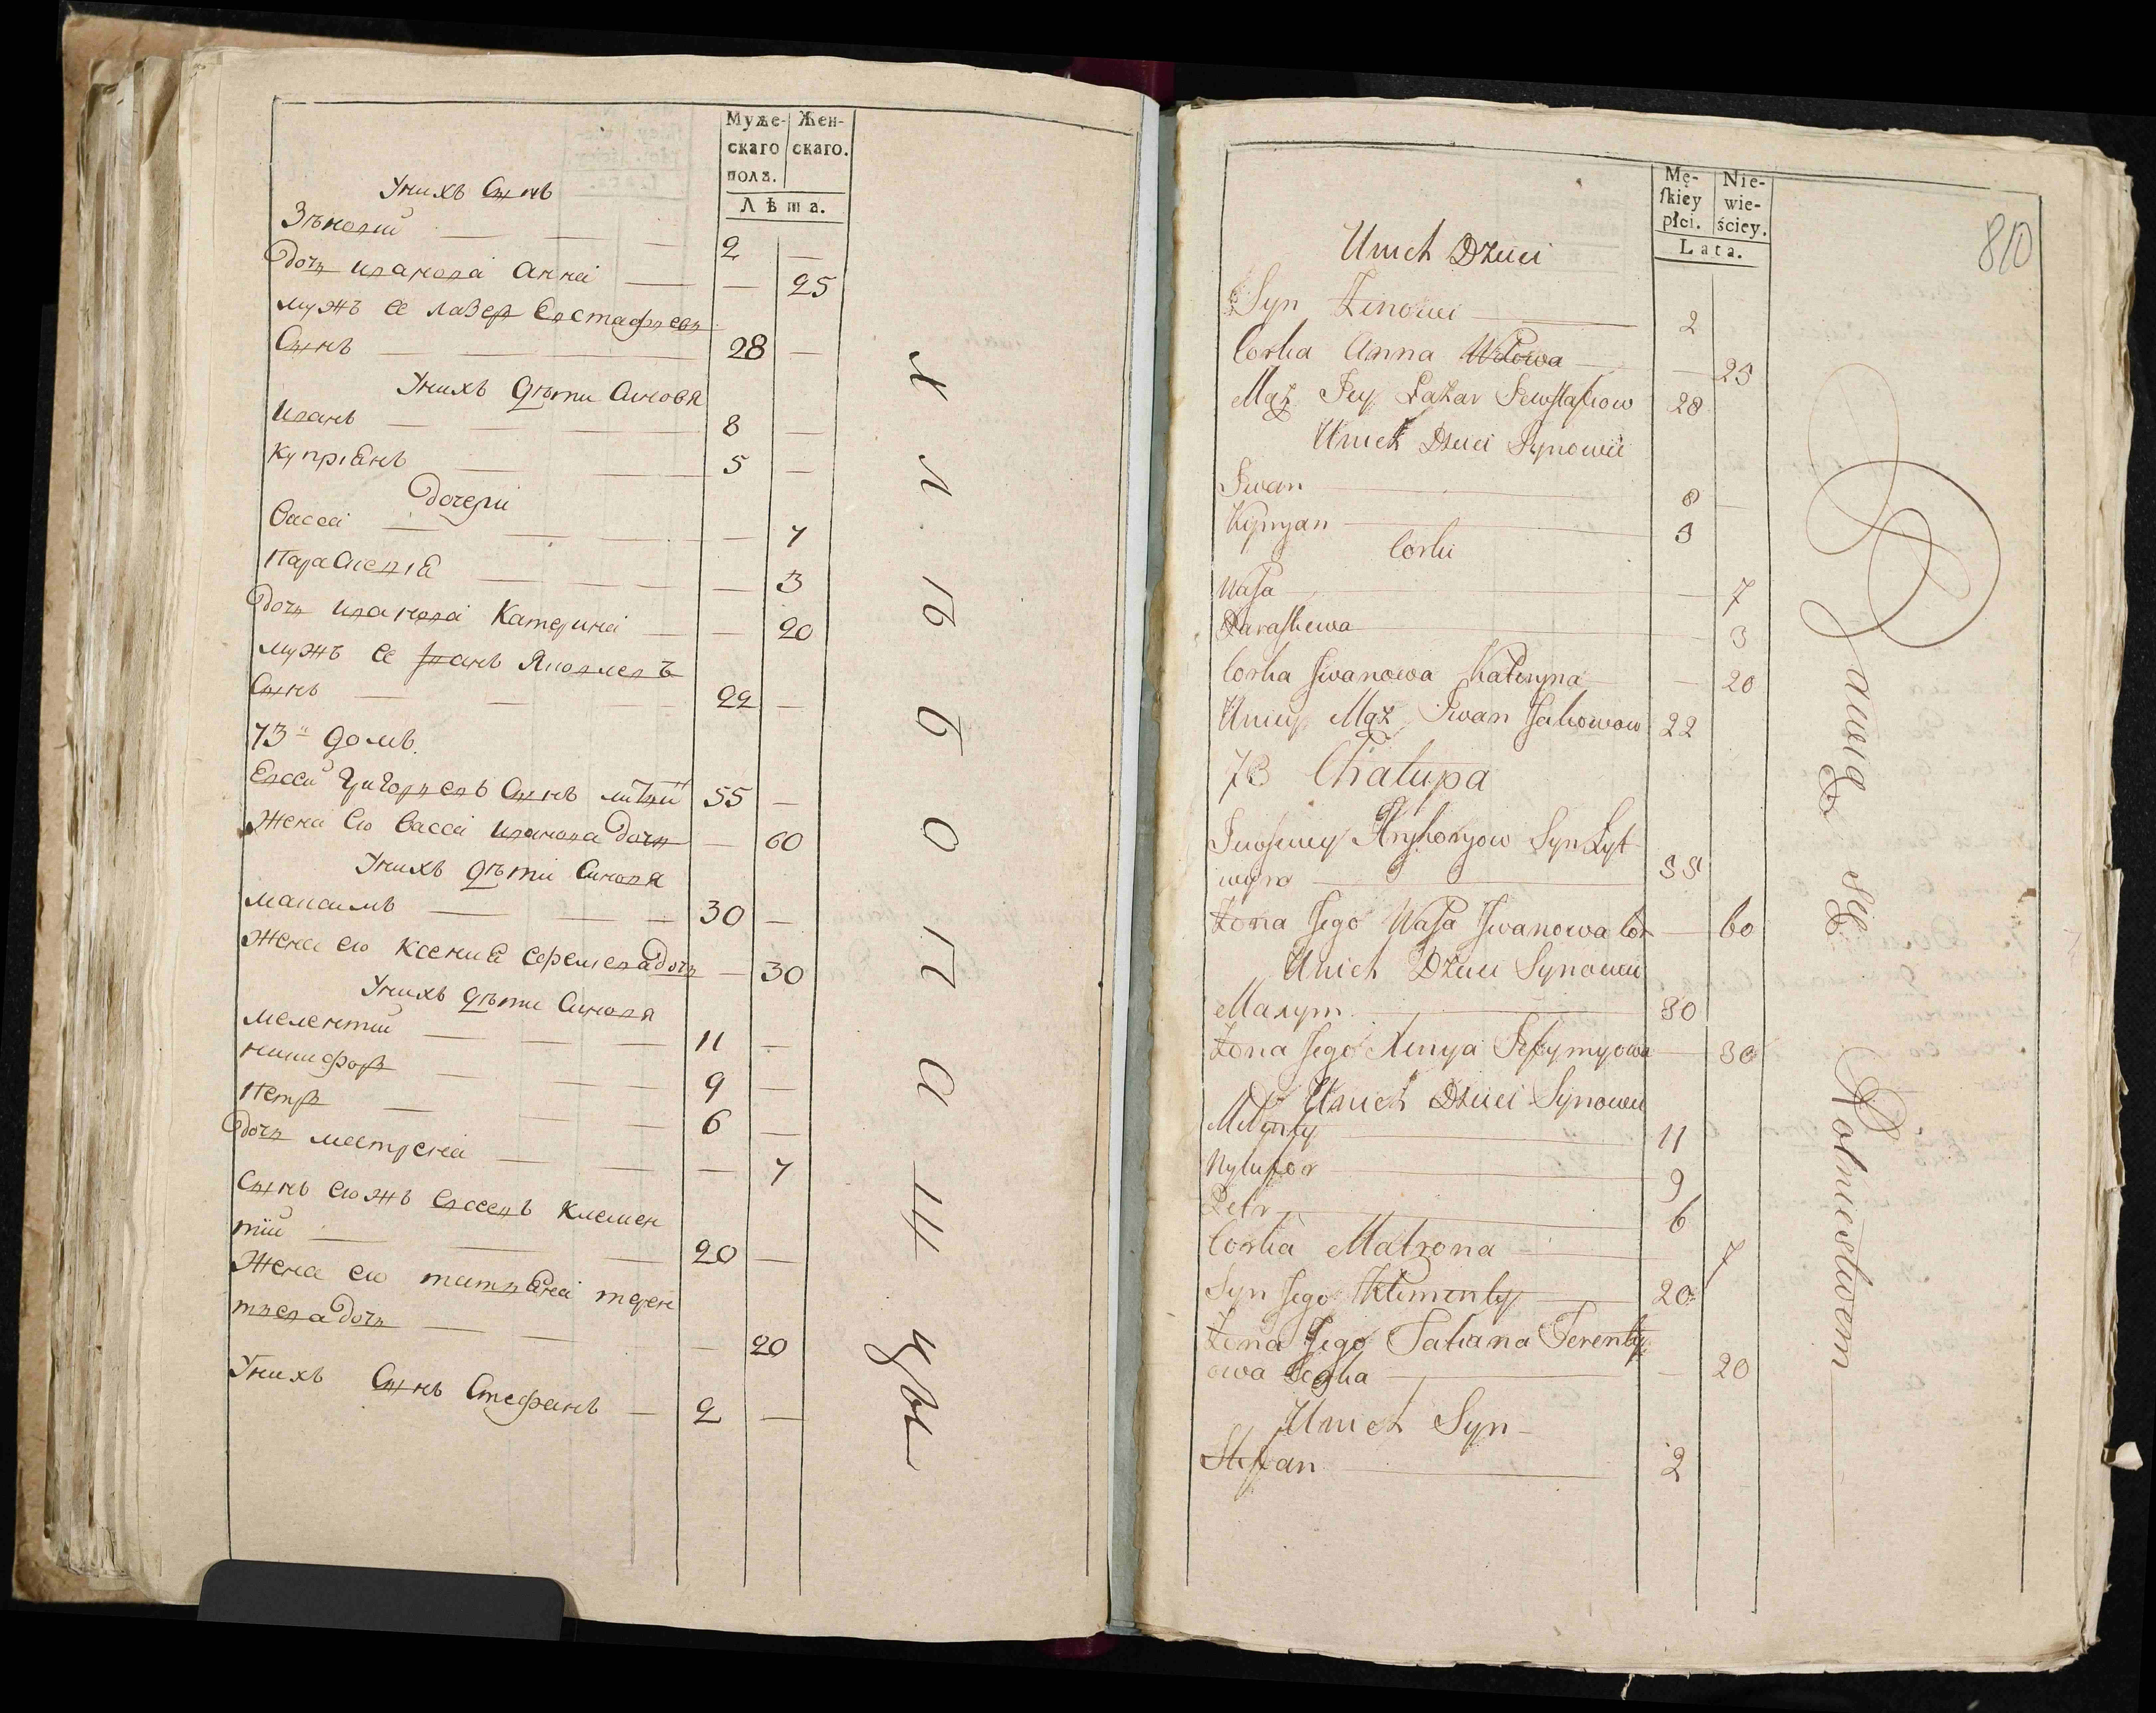 Муже-
скаго
пола.
Жен-
скаго.
Лѣта.
Унихъ Сынъ
Зѣновий 2 —
Дочь иванова анна — 25
мужъ ее лазер Евстафиевъ
Сынъ 28 —
Унихъ дѣти Синовя
Иванъ 8 —
Купріянъ 5 —
Дочери
Васса — 7
Параскевія — 3
Дочь иванова Катерина — 20
мужъ ее Яковлевъ
Сынъ 22 —
73й домъ.
Григорьевъ Сынъ 55 —
Жена Ево Васса иванова Дочь — 60
Унихъ дѣти Синовя
максимъ 30 —
Жена ево Ксения ефемева дочь — 30
Унихъ дѣти Синовя
мелентий 11 —
никифоръ 9 —
Петръ 6 —
Дочь матрена — 7
Сынъ евожъ Климен
тий 20 —
Жена ево татьяна терен
тьева Дочь — 20
Унихъ Сынъ Стефанъ — 2 —
хлѣбопашцы
Mę-
skiey
płci.
Nie-
wie-
ściey.
Lata.
810
Unich Dzieci
Syn Zinowi 2
Corka Anna — 25
Mąż Jey Łazar Jewstafiow 28
Unich Dzieci Synowie
Iwan 8 —
Kipryan 5
Corki
Wasa — 7
Paraskewa — 3
Corka Iwanowa Kateryna — 20
Uniey Mąż Iwan Jakowow 22
73 Chałupa
Hryhoryow Syn Lyt
wyn 55
Żona Jego Wasa Iwanowa Cor — 60
Unich Dzieci Synowie
Maxym 30
Żona Jego Xenya Jefymyowa — 30
Unich Dzieci Synowie
Milenty 11
Nykifor 9
Petr 6
Corka Matrona 7
Syn Jego Klimenty 20
Żona Jego Tatiana Terenty
owa — 20
Unich Syn
Stefan 2
Bawią się Rolnictwem